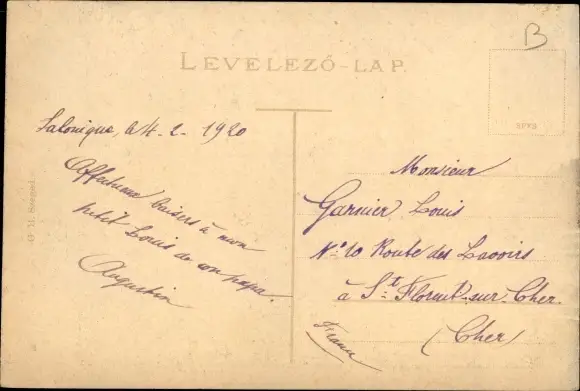 B
LEVELEZŐ-LAP.
Salonique, le 4-2-1920
Affectueux baisers à mon
petit Louis de son papa.
Augustin
Monsieur
Garnier Louis
N° 10 Route des Lavoirs
à St Florent-sur-Cher.
(Cher)
France